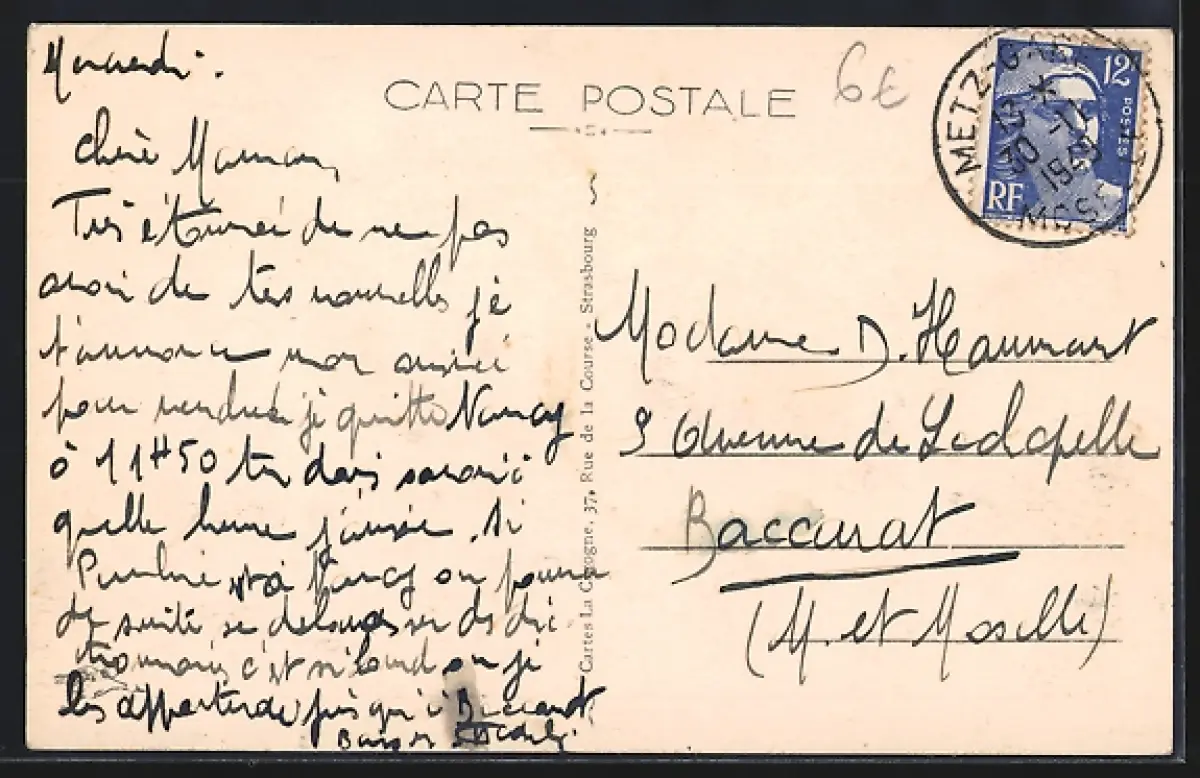 Mercredi.
Chère Maman,
Très étonnée de ne pas
avoir de tes nouvelles je
t'annonce mon arrivée
pour vendredi je quitte Nancy
à 11H50 tu dois savoir à
quelle heure j'arrive. Si
est à Nancy on pourra
de suite se débarrasser des
c'est si lourd ou je
les apporterai jusqu'à Baccarat
Baisers
CARTE POSTALE
6€
12F
POSTES
RF
METZ-GARE
13
30 -11
1949
MOSELLE
Cartes La Cigogne, 37, Rue de la Course - Strasbourg
Madame D. Haumant
9 Avenue de Lachapelle
Baccarat
(M. et Moselle)